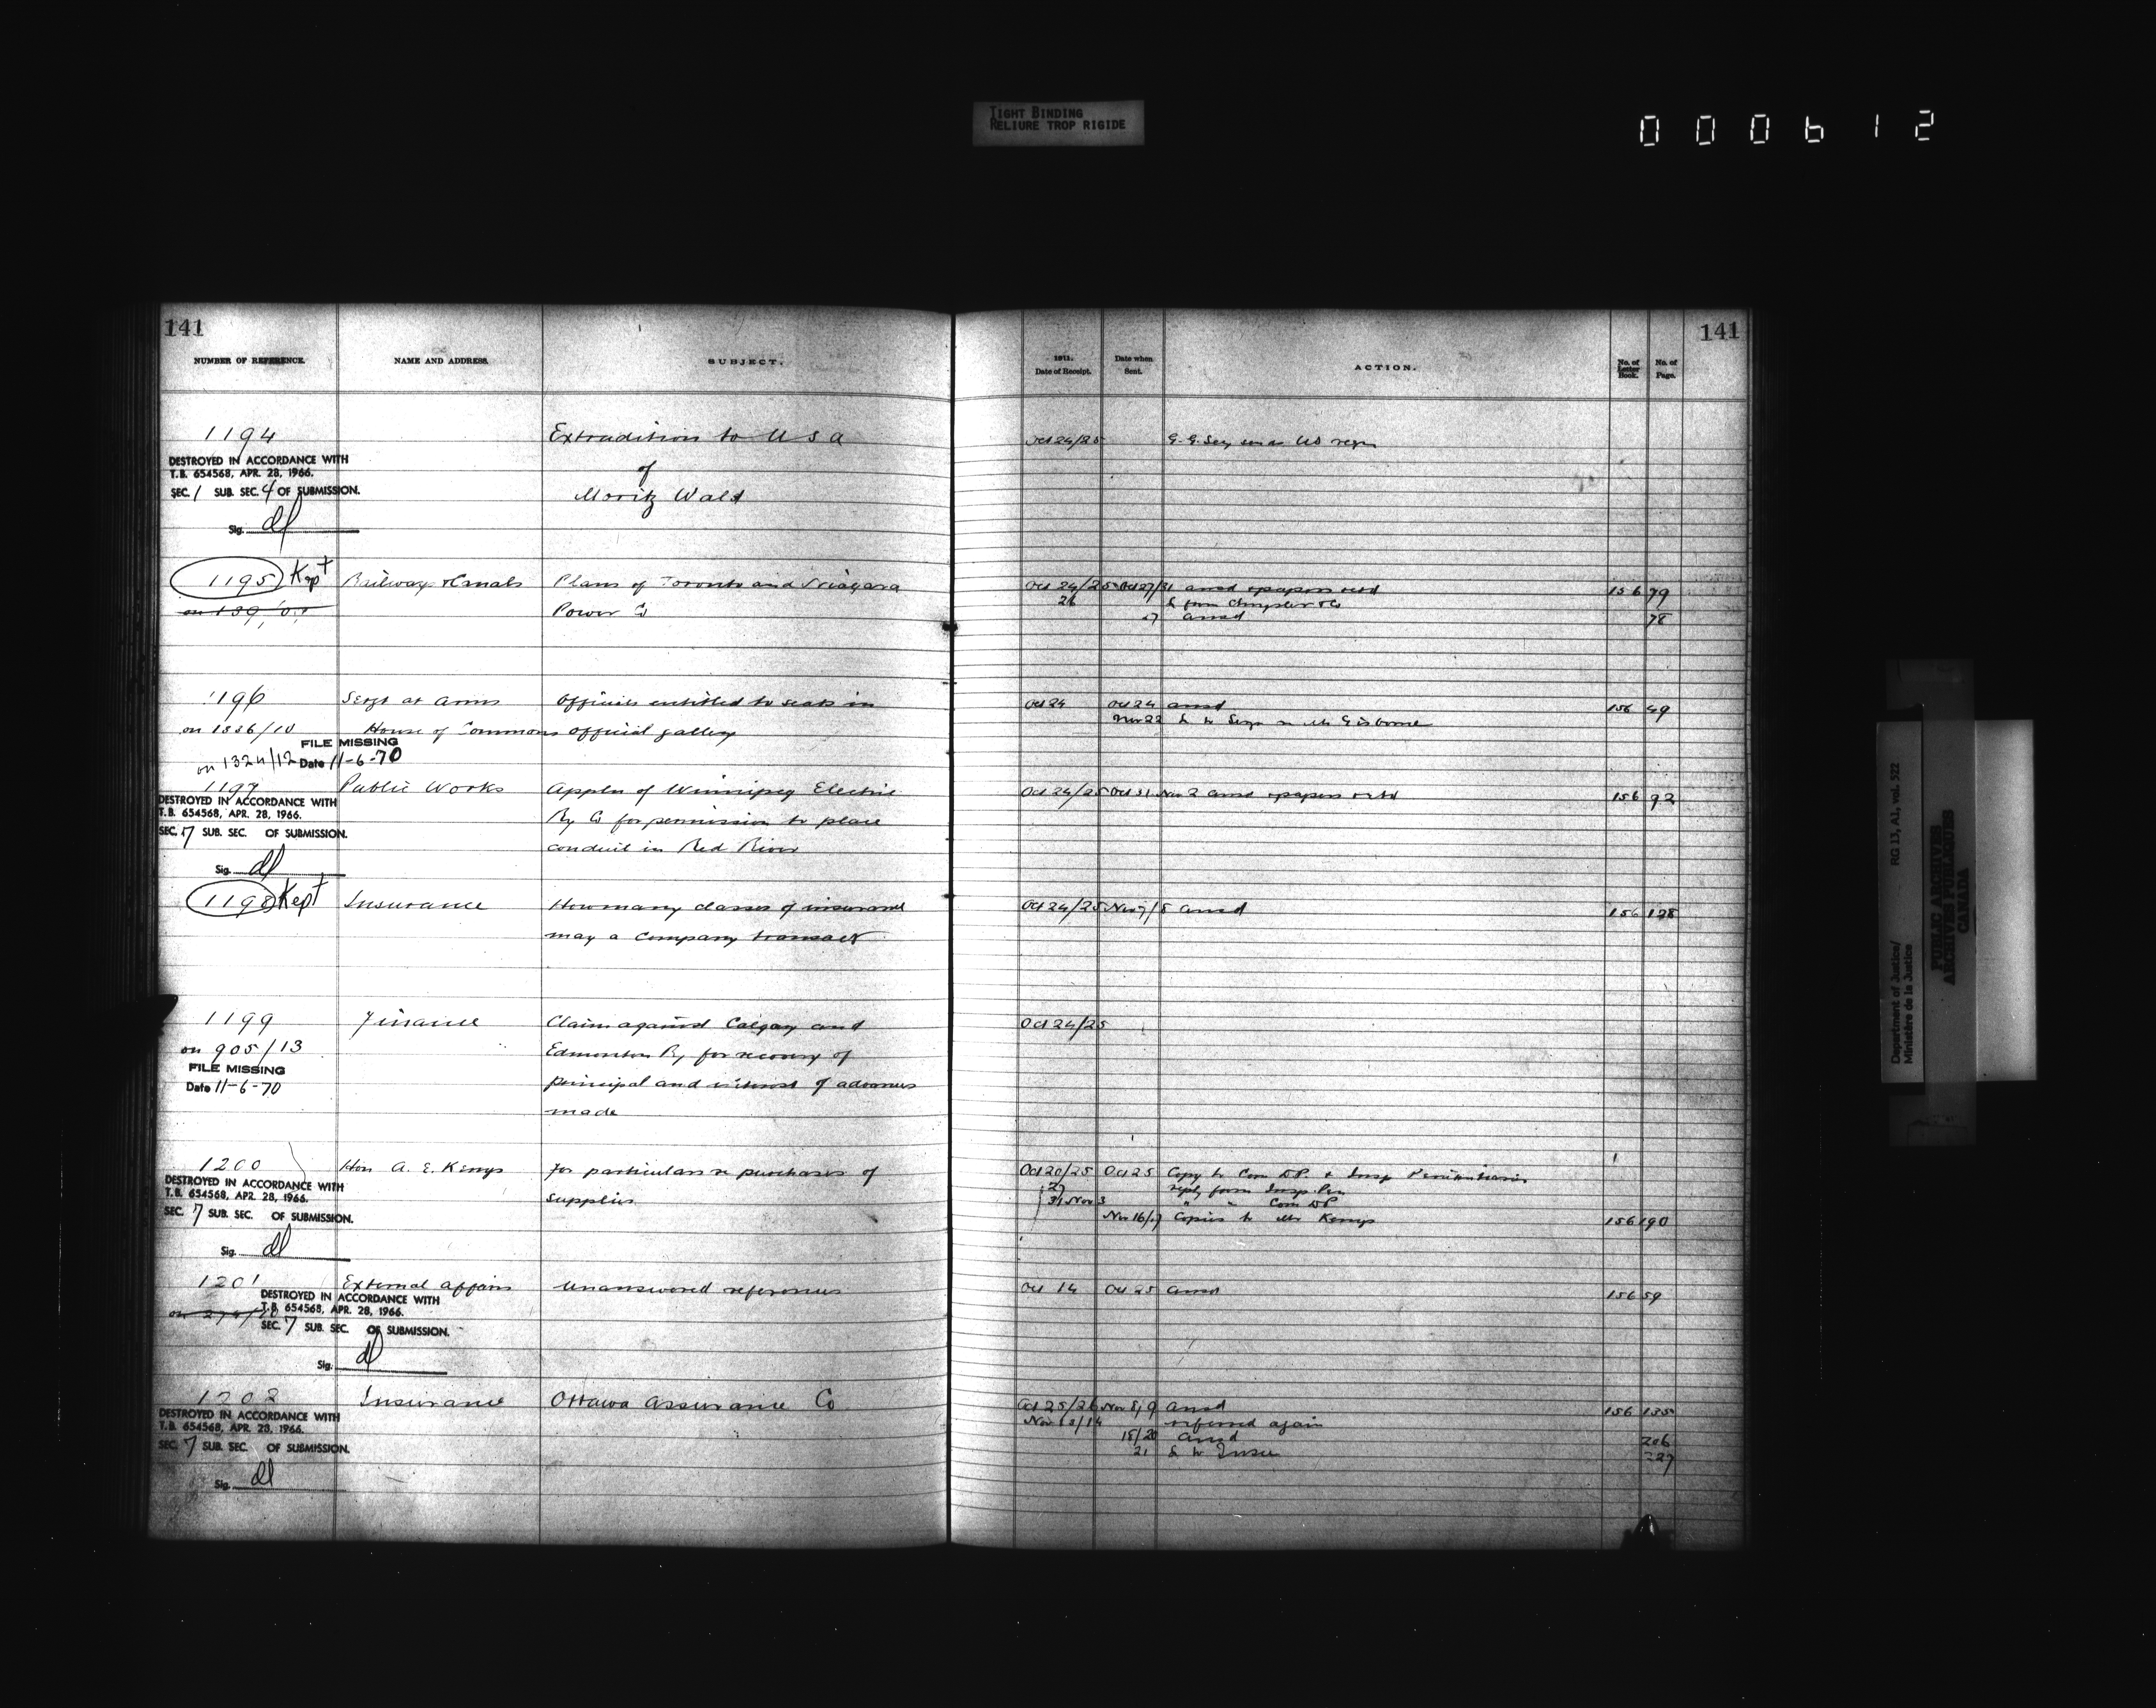 TIGHT BINDING
RELIURE TROP RIGIDE
000612
141
NUMBER OF REFERENCE.
NAME AND ADDRESS.
SUBJECT.
1911.
Date of Receipt.
Date when
Sent.
ACTION.
No. of
Letter
Book.
No. of
Page.
141
1194
Extradition to U S A
Oct 24/25
DESTROYED IN ACCORDANCE WITH
T.B. 654568, APR. 28, 1966.
of
SEC. 1 SUB. SEC. 4 OF SUBMISSION.
Moritz Wald
Sig. dl
1195 Kept Railways & Canals Plans of Toronto and Niagara
Oct 24/25 Oct 27/31 ansd & papers retd 156 79
Power Co
26 L from Chrysler & Co
27 ansd 78
1196 Sergt at Arms Officials entitled to seats in
Oct 24 Oct 24 ansd 156 49
on 1336/10 House of Commons official gallery
Nov 22 L to Sergt Mr Gisborne
FILE MISSING
on 1324/12 Date 11-6-70
1197 Public Works Appln of Winnipeg Electric
Oct 24/25 Oct 31 Nov 2 ansd & papers retd 156 92
DESTROYED IN ACCORDANCE WITH
T.B. 654568, APR. 28, 1966.
Ry Co for permission to place
SEC. 7 SUB. SEC. OF SUBMISSION.
conduit in Red River
Sig. dl
1198 Kept Insurance How many classes of insurance
Oct 24/25 Nov 7/8 ansd 156 128
may a Company transact
1199 Finance Claim against Calgary and
Oct 24/25
on 905/13 Edmonton Ry for recovery of
FILE MISSING
Date 11-6-70
principal and interest of advances
made
1200 Hon A. E. Kemp for particulars re purchases of
Oct 20/25 Oct 25 Copy to Com D.P. & Insp Penitentiaries
DESTROYED IN ACCORDANCE WITH
T.B. 654568, APR. 28, 1966.
supplies
27 reply from Insp. Pen
31 Nov 3 " " Com DP
SEC. 7 SUB. SEC. OF SUBMISSION.
Nov 16/17 Copies to Mr Kemp 156 190
Sig. dl
1201 External Affairs Unanswered references
Oct 14 Oct 25 ansd 156 59
DESTROYED IN ACCORDANCE WITH
T.B. 654568, APR. 28, 1966.
SEC. 7 SUB. SEC. OF SUBMISSION.
Sig. dl
1202 Insurance Ottawa Assurance Co
Oct 25/26 Nov 8/9 ansd 156 135
DESTROYED IN ACCORDANCE WITH
T.B. 654568, APR. 28, 1966.
Nov 13/14 referred again
18/20 ansd 206
SEC. 7 SUB. SEC. OF SUBMISSION.
21 L to Insce 227
Sig. dl
Department of Justice/
Ministère de la Justice
RG 13, A1, vol. 522
PUBLIC ARCHIVES
ARCHIVES PUBLIQUES
CANADA